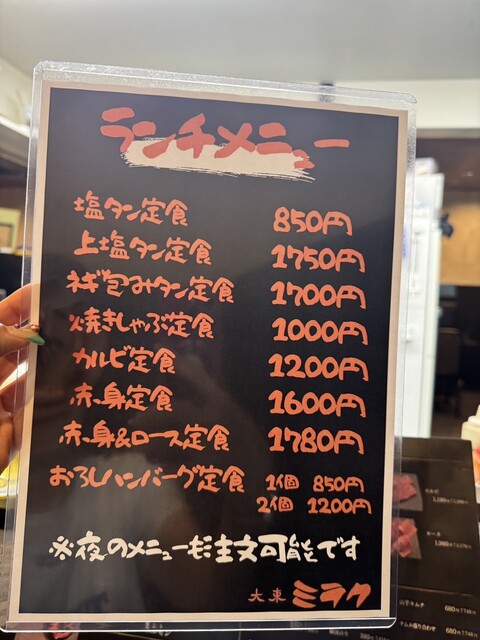 ランチメニュー
塩タン定食 850円
上塩タン定食 1750円
ネギ包みタン定食 1700円
焼きしゃぶ定食 1000円
カルビ定食 1200円
赤身定食 1600円
赤身&ロース定食 1780円
おろしハンバーグ定食 1個 850円
2個 1200円
※夜のメニューも注文可能です
大東 ミラク